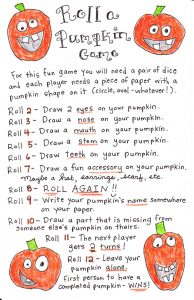 Roll a
Pumpkin
Game
For this fun game you will need a pair of dice
and each player needs a piece of paper with a
pumpkin shape on it (circle, oval - whatever!).
Roll 2 - Draw 2 eyes on your pumpkin.
Roll 3 - Draw a nose on your pumpkin.
Roll 4 - Draw a mouth on your pumpkin.
Roll 5 - Draw a stem on your pumpkin.
Roll 6 - Draw teeth on your pumpkin.
Roll 7 - Draw a fun accessory on your pumpkin.
Maybe a hat, earrings, scarf, etc.
Roll 8 - ROLL AGAIN!!
Roll 9 - Write your pumpkin's name somewhere
on your paper.
Roll 10 - Draw a part that is missing from
someone else's pumpkin on theirs.
Roll 11 - The next player
gets 2 turns!
Roll 12 - Leave your
pumpkin alone.
First person to have a
completed pumpkin - WINS!